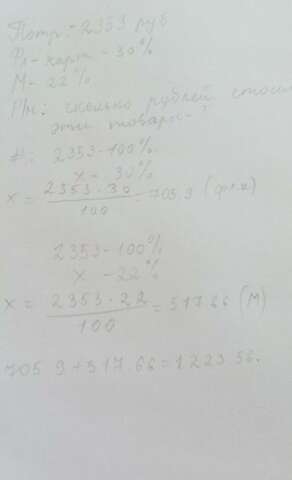 Потр:-2353 руб
Фл-карт - 30%
М - 22%
Пм: сколько рублей стоили
эти товары-?
#: 2353-100%
x - 30%
x = 2353·30
100
= 705.9 (фл.к)
2353-100%
x - 22%
x = 2353·22
100
= 517.66 (М)
705 9+517.66=1223.56.